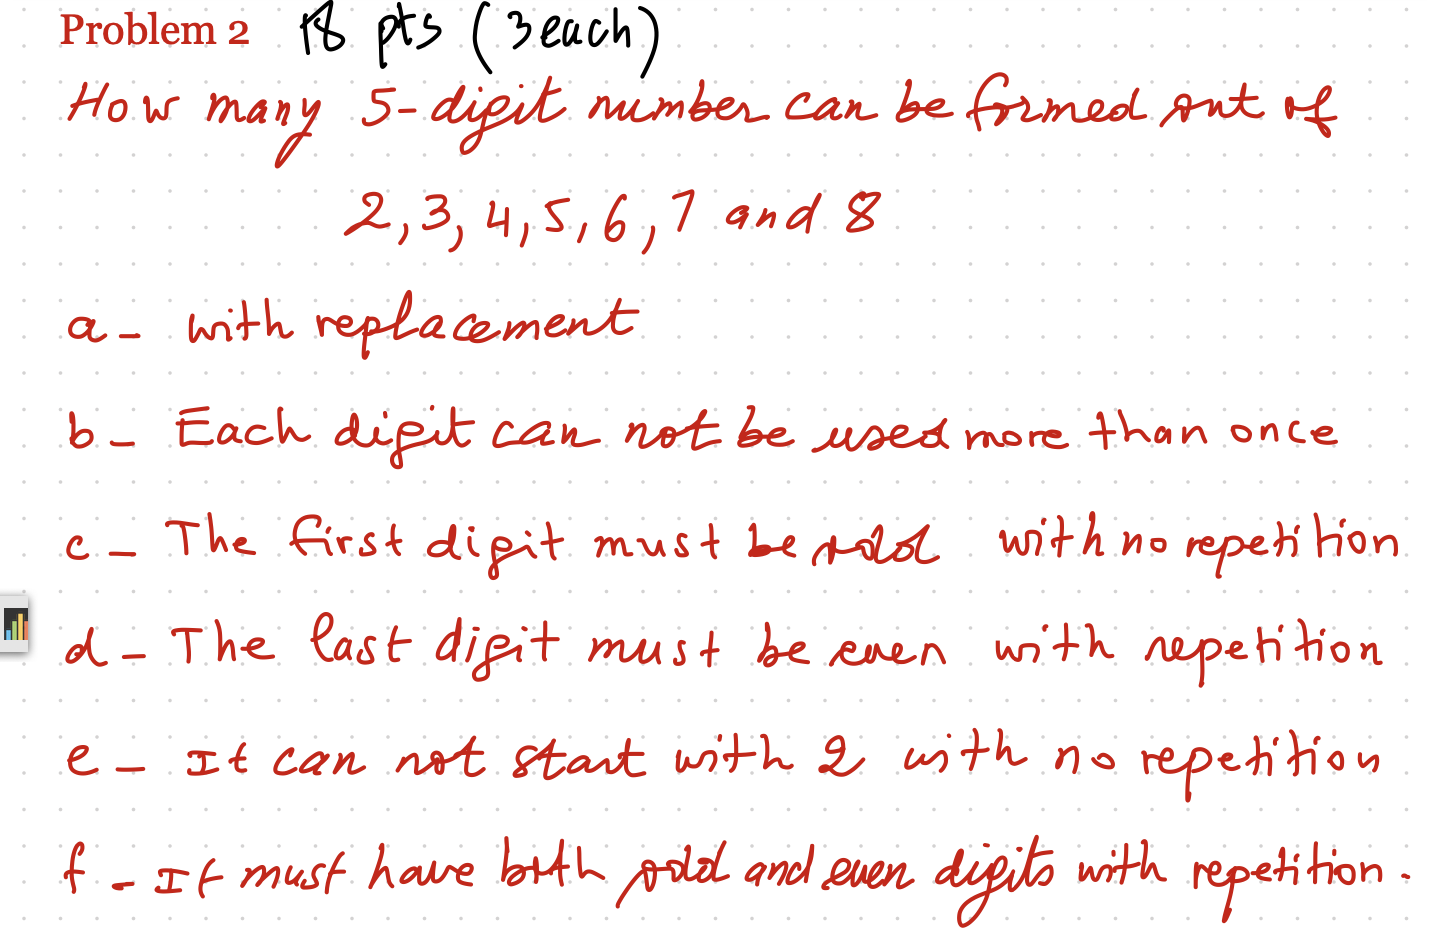 Problem 2 18 pts (3 each)
How many 5-digit number can be formed out of
2, 3, 4, 5, 6, 7 and 8
a - with replacement
b - Each digit can not be used more than once
c - The first digit must be odd with no repetition
d - The last digit must be even with repetition
e - It can not start with 2 with no repetition
f - It must have both odd and even digits with repetition.